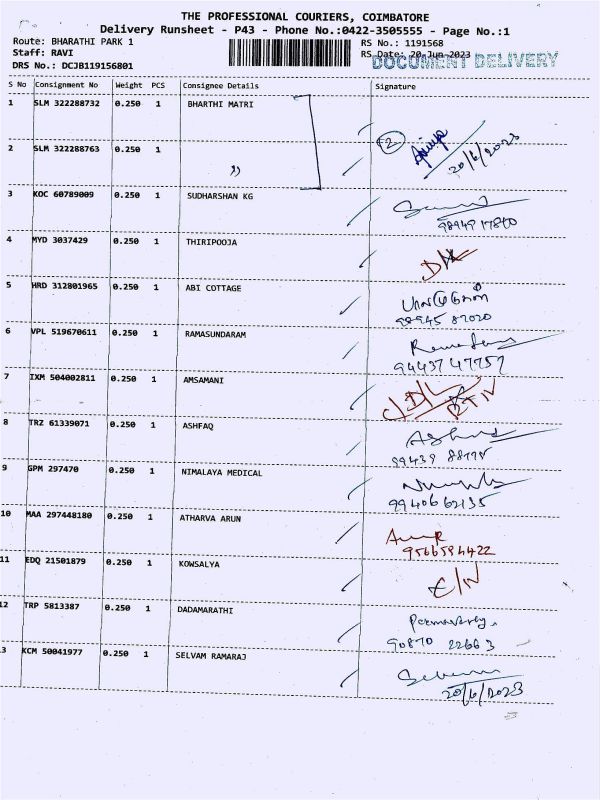 THE PROFESSIONAL COURIERS, COIMBATORE
Delivery Runsheet - P43 - Phone No.:0422-3505555 - Page No.:1
Route: BHARATHI PARK 1
RS No.: 1191568
Staff: RAVI
RS Date: 20-Jun-2023
DRS No.: DCJB119156801
DOCUMENT DELIVERY
S No Consignment No Weight PCS Consignee Details Signature
1 SLM 322288732 0.250 1 BHARTHI MATRI
2 20/6/2023
2 SLM 322288763 0.250 1 "
3 KOC 60789009 0.250 1 SUDHARSHAN KG
4 MYD 3037429 0.250 1 THIRIPOOJA
D/L
5 HRD 312801965 0.250 1 ABI COTTAGE
98945 87020
6 VPL 519670611 0.250 1 RAMASUNDARAM
94437 47757
7 IXM 504002811 0.250 1 AMSAMANI
D/L RTN
8 TRZ 61339071 0.250 1 ASHFAQ
9 GPM 297470 0.250 1 NIMALAYA MEDICAL
9940662135
10 MAA 297448180 0.250 1 ATHARVA ARUN
9566594422
11 EDQ 21501879 0.250 1 KOWSALYA
C/N
12 TRP 5813387 0.250 1 DADAMARATHI
90870 22663
3 KCM 50041977 0.250 1 SELVAM RAMARAJ
20/6/2023